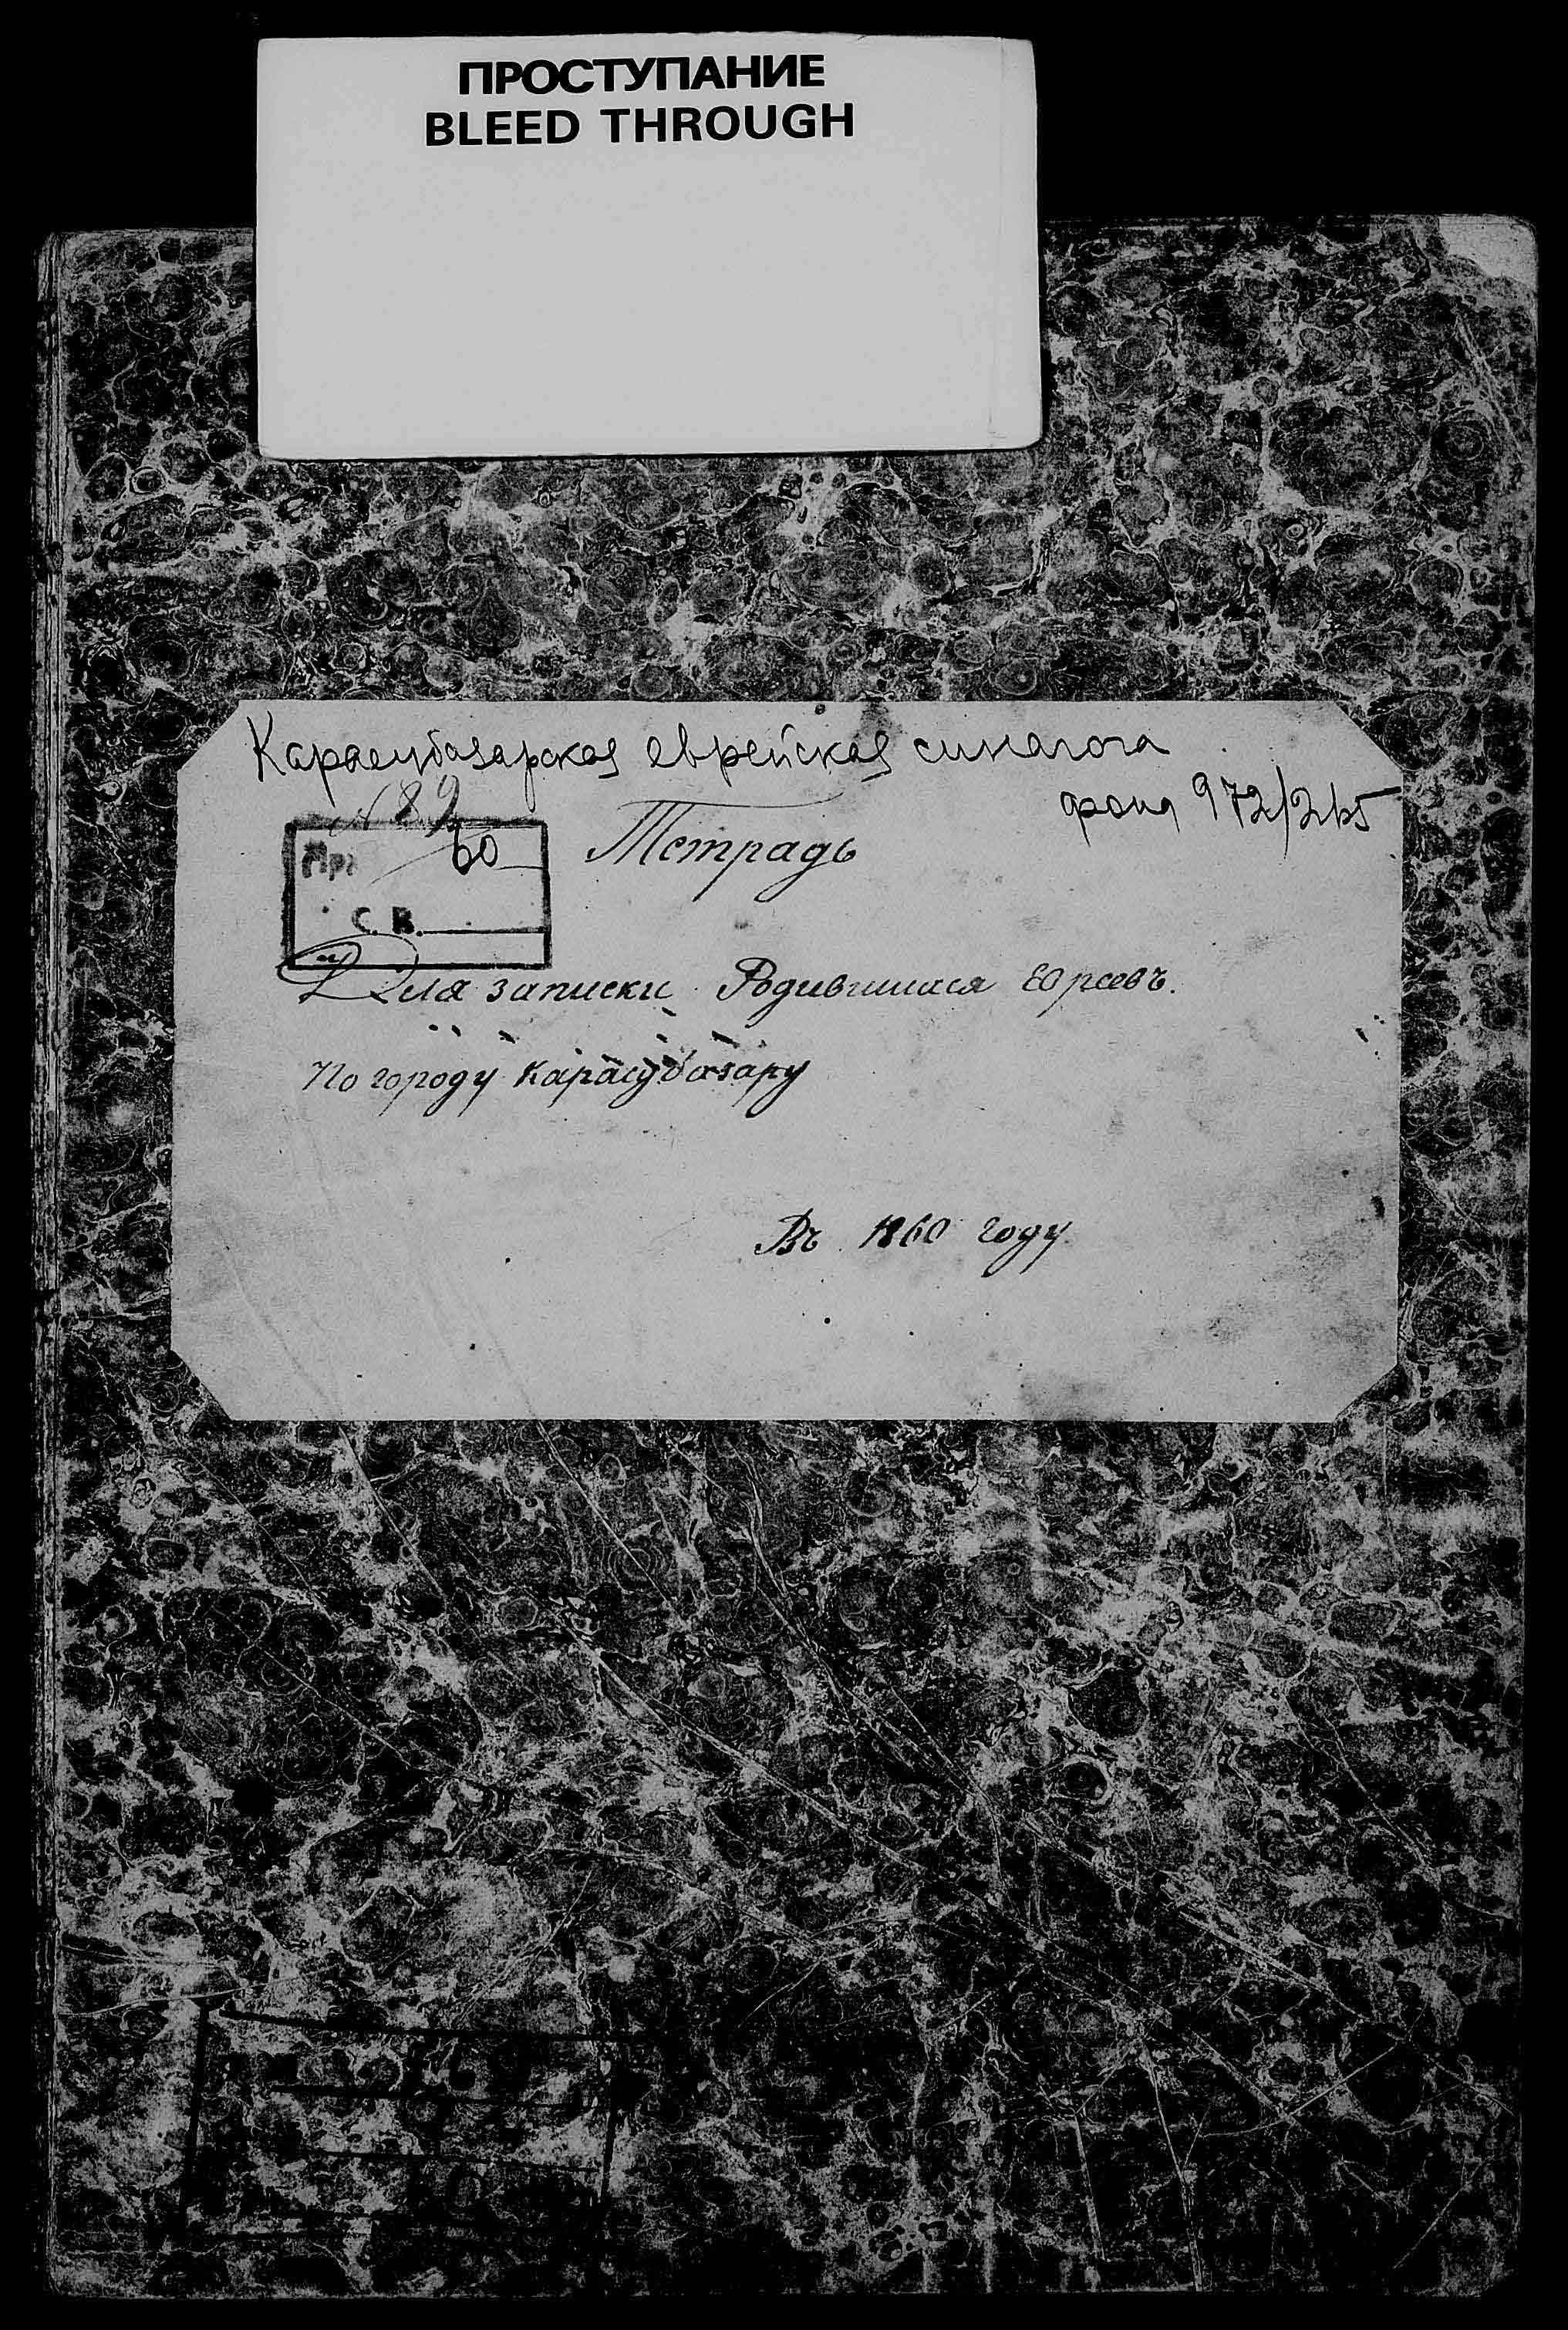 ПРОСТУПАНИЕ
BLEED THROUGH
Карасубазарская еврейская синагога
фонд 972/265
№ 89
60
Тетрадь
С. В.
Для записки Родившихся Евреевъ.
По городу Карасубазару
Въ 1860 году